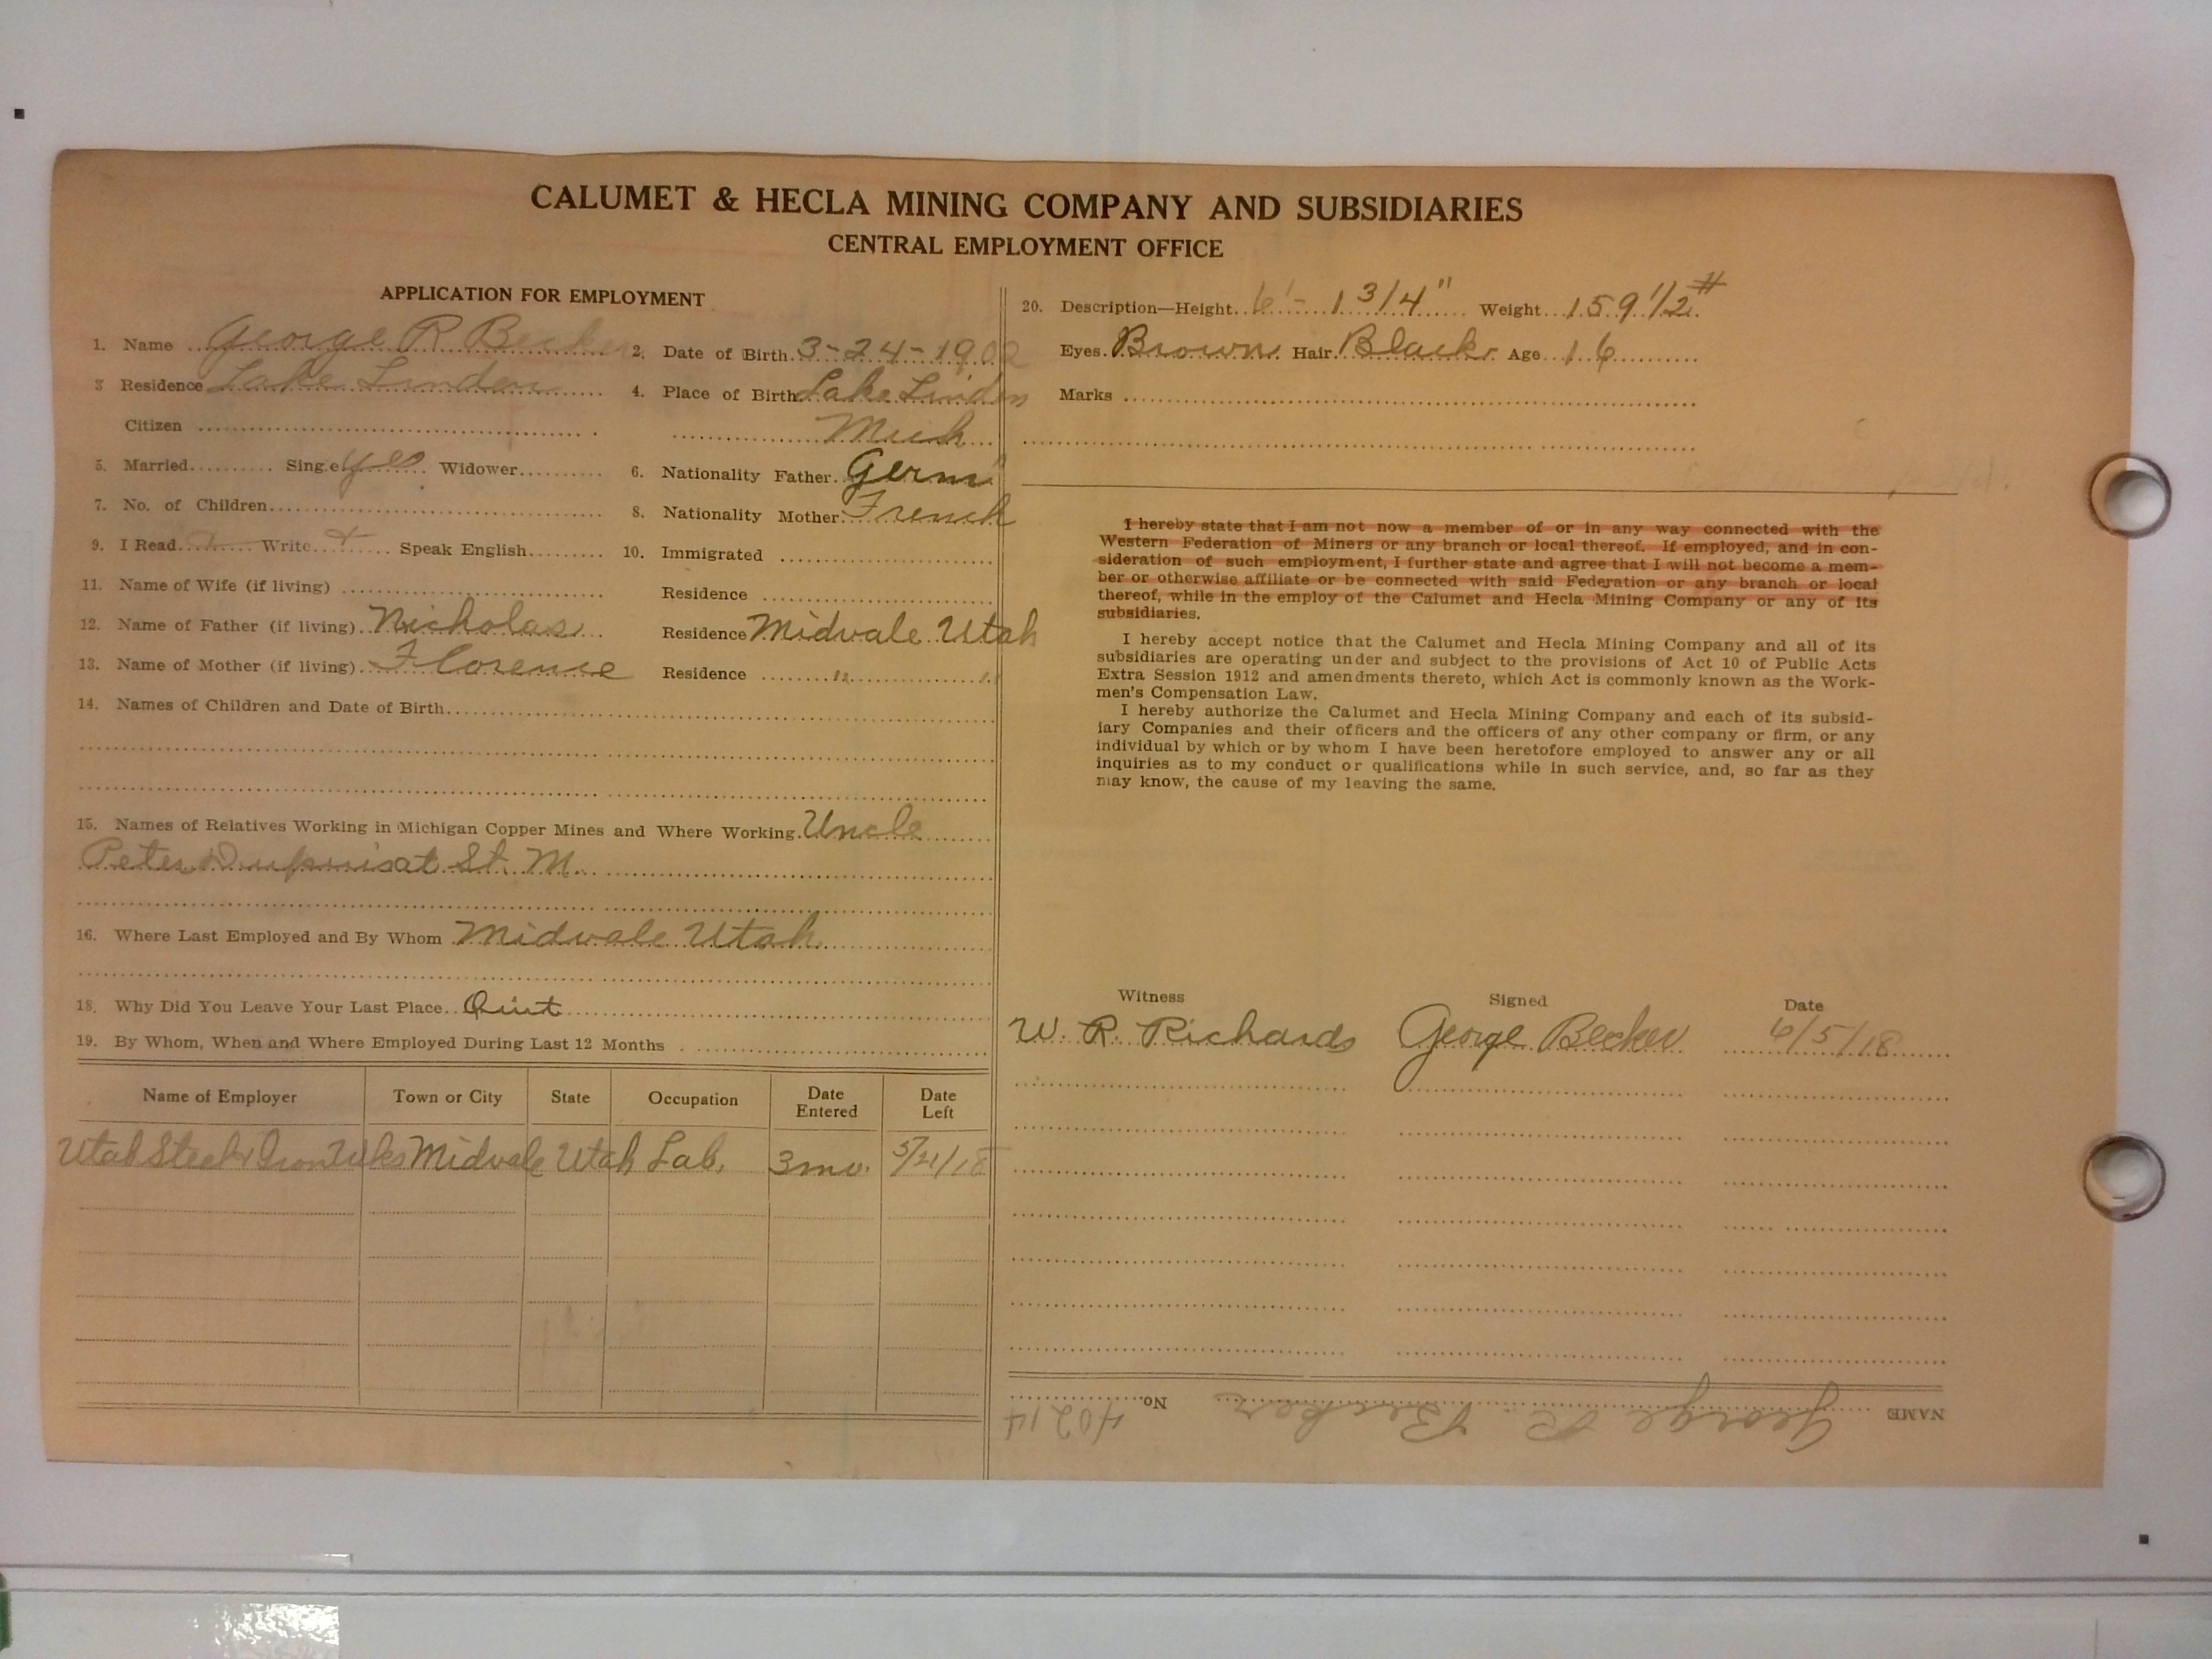 CALUMET & HECLA MINING COMPANY AND SUBSIDIARIES
CENTRAL EMPLOYMENT OFFICE
APPLICATION FOR EMPLOYMENT
1. Name George R Becker 2. Date of Birth 3-24-1902
3 Residence Lake Linden 4. Place of Birth Lake Linden
Citizen Mich
5. Married Single yes Widower 6. Nationality Father Germ
7. No. of Children 8. Nationality Mother French
9. I Read Write Speak English 10. Immigrated
11. Name of Wife (if living) Residence
12. Name of Father (if living) Nicholas Residence Midvale Utah
13. Name of Mother (if living) Florence Residence " "
14. Names of Children and Date of Birth
15. Names of Relatives Working in Michigan Copper Mines and Where Working Uncle
Peter Dupuis at St. M.
16. Where Last Employed and By Whom Midvale Utah
18. Why Did You Leave Your Last Place Quit
19. By Whom, When and Where Employed During Last 12 Months
Name of Employer Town or City State Occupation Date Entered Date Left
Utah Steel & Iron Wks Midvale Utah Lab. 3 mo. 5/21/18
20. Description—Height 6'- 1 3/4" Weight 159 1/2 #
Eyes Brown Hair Black Age 16
Marks
I hereby state that I am not now a member of or in any way connected with the
Western Federation of Miners or any branch or local thereof. If employed, and in con-
sideration of such employment, I further state and agree that I will not become a mem-
ber or otherwise affiliate or be connected with said Federation or any branch or local
thereof, while in the employ of the Calumet and Hecla Mining Company or any of its
subsidiaries.
I hereby accept notice that the Calumet and Hecla Mining Company and all of its
subsidiaries are operating under and subject to the provisions of Act 10 of Public Acts
Extra Session 1912 and amendments thereto, which Act is commonly known as the Work-
men's Compensation Law.
I hereby authorize the Calumet and Hecla Mining Company and each of its subsid-
iary Companies and their officers and the officers of any other company or firm, or any
individual by which or by whom I have been heretofore employed to answer any or all
inquiries as to my conduct or qualifications while in such service, and, so far as they
may know, the cause of my leaving the same.
Witness Signed Date
W. R. Richards George Becker 6/5/18
NAME George R. Becker No. 40214